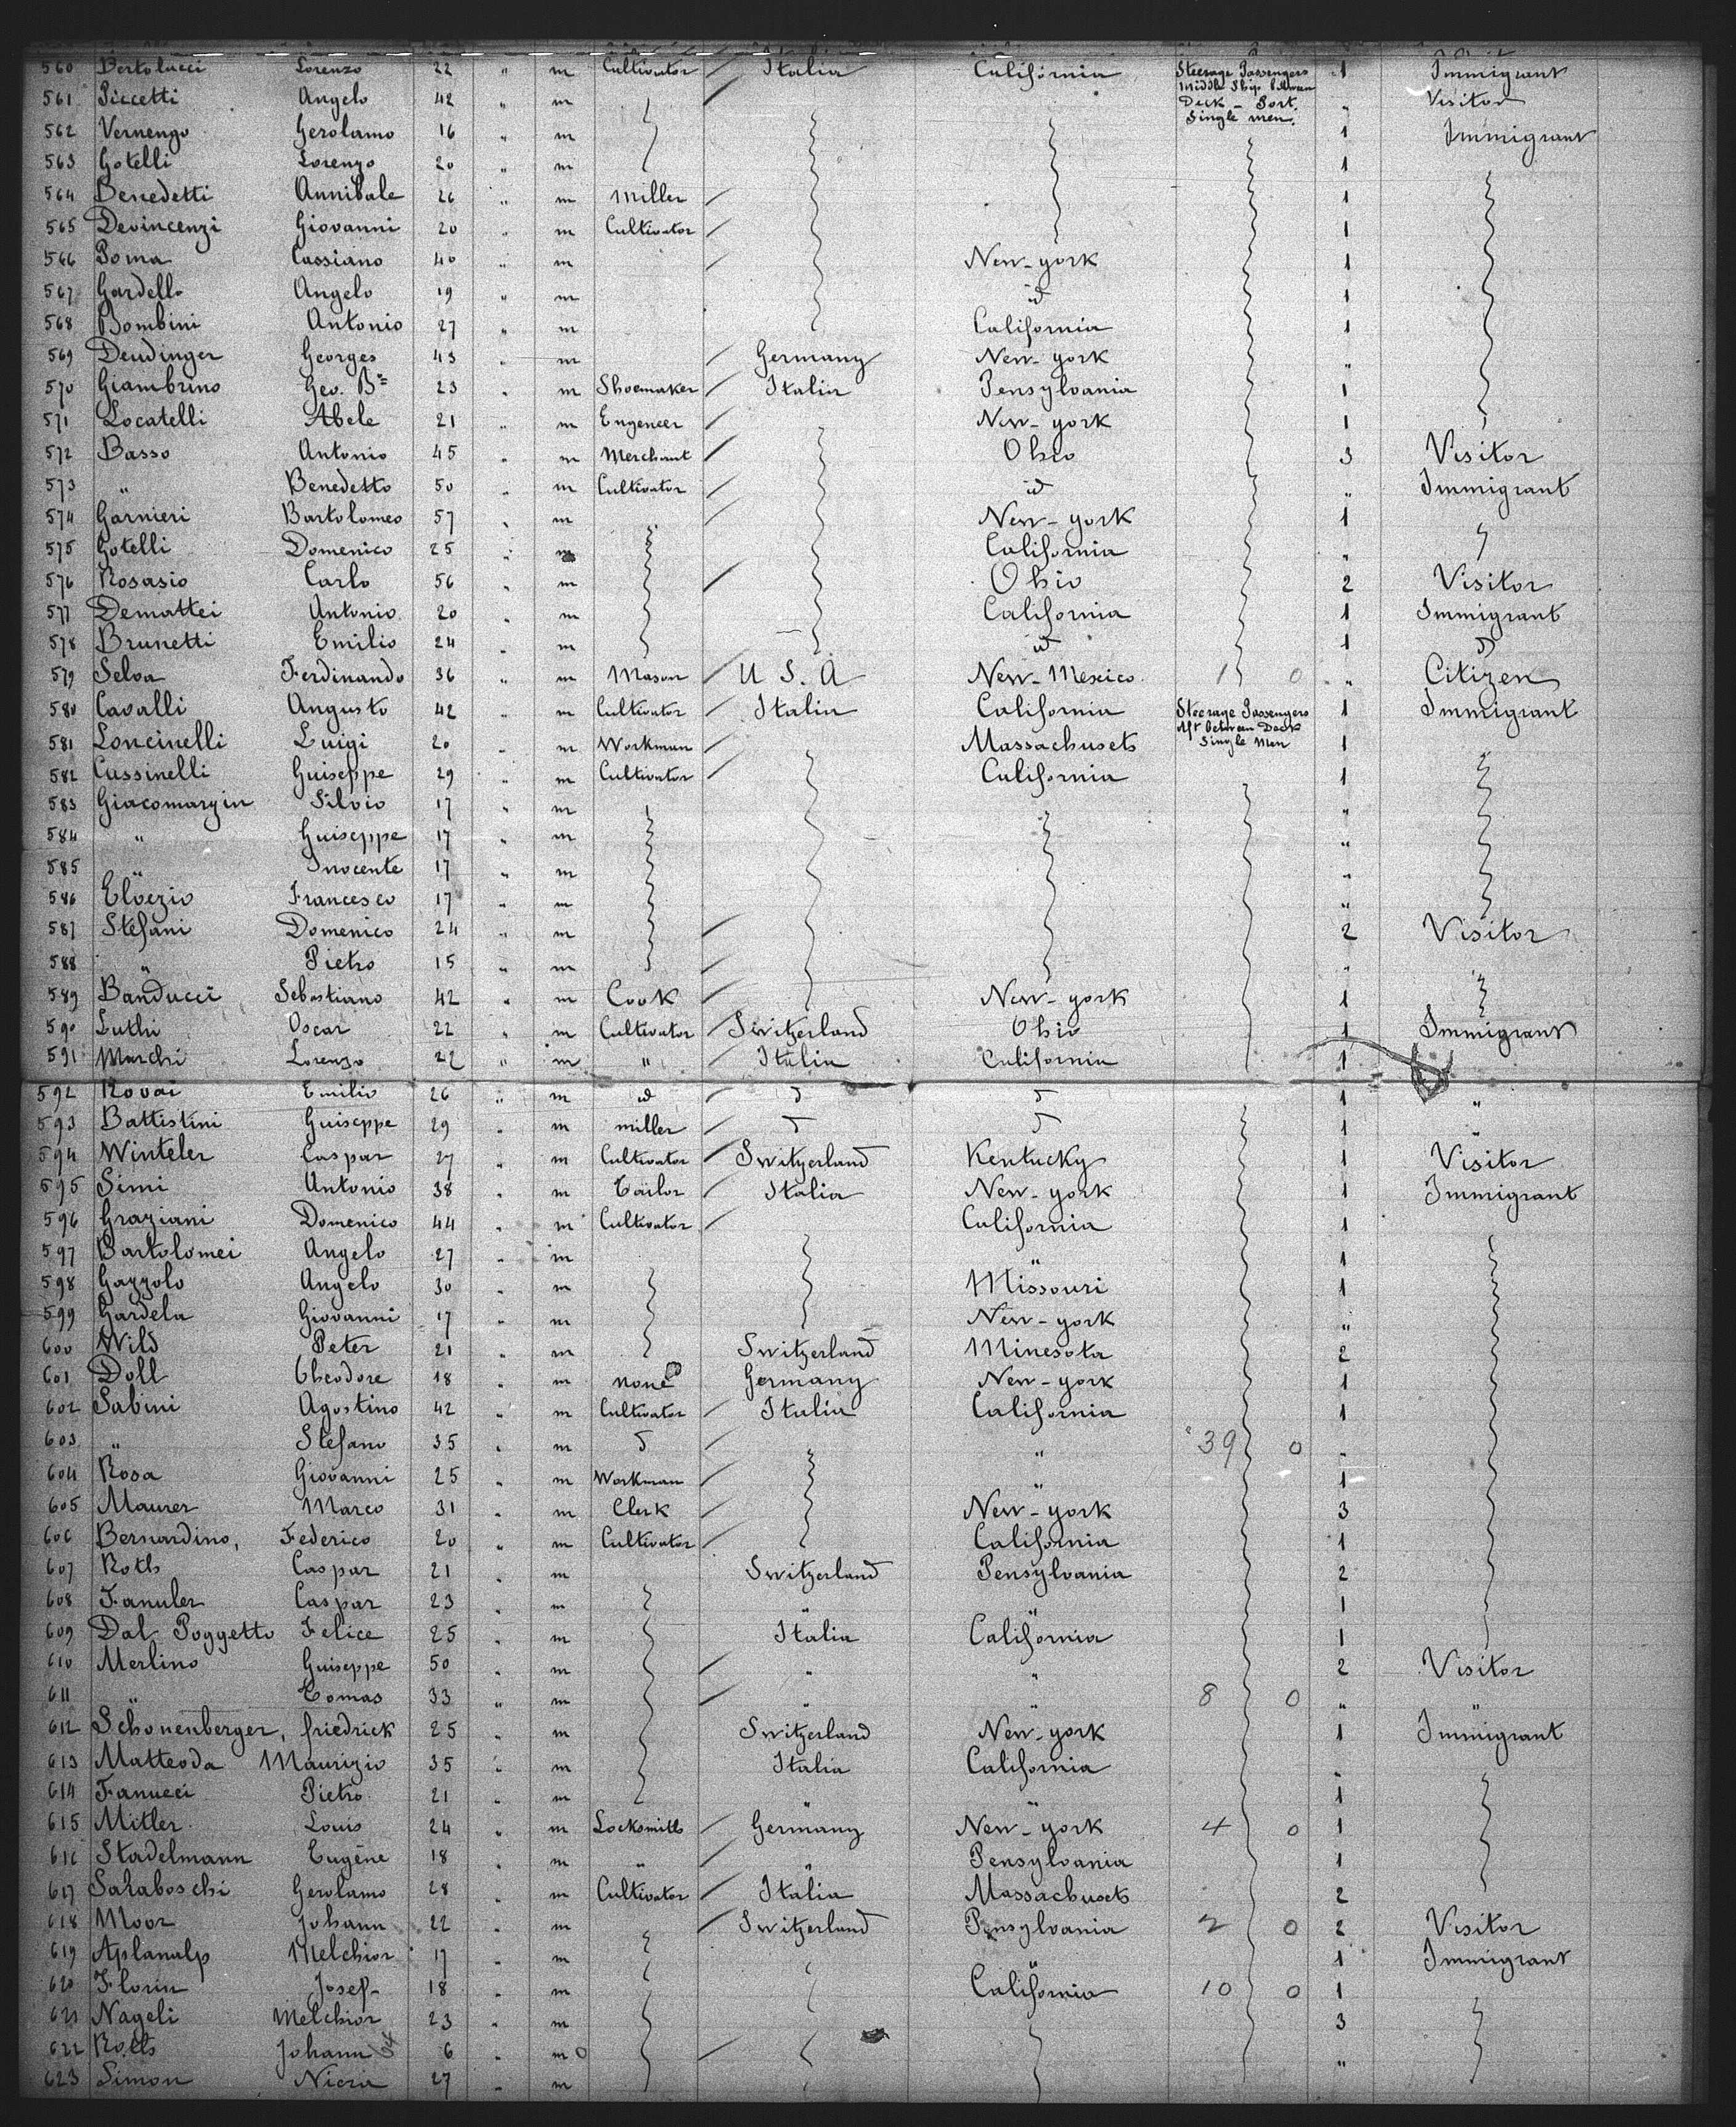 560 Bertolucci Lorenzo 22 " m Cultivator Italia California Steerage Passengers 1 Immigrant
Middle Ship between
561 Piccetti Angelo 42 " m Deck - Port. " Visitor
Single men.
562 Vernengo Gerolamo 16 " m 1 Immigrant
563 Gotelli Lorenzo 20 " m 1
564 Benedetti Annibale 26 " m Miller 1
565 Devincenzi Giovanni 20 " m Cultivator 1
566 Poma Cassiano 40 " m New-york 1
567 Gardello Angelo 19 " m id 1
568 Bombini Antonio 27 " m California 1
569 Deudinger Georges 43 " m Germany New-york "
570 Giambrino Geo. Bta 23 " m Shoemaker Italia Pensylvania 1
571 Locatelli Abele 21 " m Engeneer New-york 1
572 Basso Antonio 45 " m Merchant Ohio 3 Visitor
573 " Benedetto 50 " m Cultivator id " Immigrant
574 Garnieri Bartolomeo 57 " m New-york 1
575 Gotelli Domenico 25 " m California "
576 Rosasio Carlo 56 " m Ohio 2 Visitor
577 Demattei Antonio 20 " m California 1 Immigrant
578 Brunetti Emilio 24 " m id 1 id
579 Selva Ferdinando 36 " m Mason U S. A New-Mexico 1 0 " Citizen
580 Cavalli Augusto 42 " m Cultivator Italia California Steerage Passengers 1 Immigrant
Aft between Deck
581 Loncinelli Luigi 20 " m Workman Massachusets Single Men 1
582 Cassinelli Guiseppe 29 " m Cultivator California 1
583 Giacomazzin Silvio 17 " m "
584 " Guiseppe 17 " m "
585 " Inocente 17 " m "
586 Elvezio Francesco 17 " m "
587 Stefani Domenico 24 " m 2 Visitor
588 " Pietro 15 " m "
589 Banducci Sebastiano 42 " m Cook New-york 1
590 Luthi Oscar 22 " m Cultivator Switzerland Ohio 1 Immigrant
591 Marchi Lorenzo 22 " m " Italia California 1
592 Rovai Emilio 26 " m id id id 1 "
593 Battistini Guiseppe 29 " m miller id id 1 "
594 Winteler Caspar 27 " m Cultivator Switzerland Kentucky 1 Visitor
595 Simi Antonio 38 " m Tailor Italia New-york 1 Immigrant
596 Graziani Domenico 44 " m Cultivator California 1
597 Bartolomei Angelo 27 " m " 1
598 Gazzolo Angelo 30 " m Missouri 1
599 Gardela Giovanni 17 " m New-york "
600 Wild Peter 21 " m Switzerland Minesota 2
601 Doll Theodore 18 " m none Germany New-york 1
602 Sabini Agostino 42 " m Cultivator Italia California 1
603 " Stefano 35 " m id " 39 0 "
604 Rosa Giovanni 25 " m Workman " 1
605 Maurer Marco 31 " m Clerk New-york 3
606 Bernardino, Federico 20 " m Cultivator California 1
607 Roth Caspar 21 " m Switzerland Pensylvania 2
608 Fanuler Caspar 23 " m " " 1
609 Dal Poggetto Felice 25 " m Italia California 1
610 Merlino Guiseppe 50 " m " " 2 Visitor
611 " Tomas 33 " m " " 8 0 " "
612 Schonenberger, friedrick 25 " m Switzerland New-york 1 Immigrant
613 Matteoda Maurizio 35 " m Italia California "
614 Fanucci Pietro 21 " m " " 1
615 Mitler Louis 24 " m Locksmith Germany New-york 4 0 1
616 Stadelmann Eugène 18 " m " " Pensylvania 1
617 Gerolamo 28 " m Cultivator Italia Massachusets 2
618 Moor Johann 22 " m Switzerland Pensylvania 2 0 2 Visitor
619 Aplanalp Melchior 17 " m " 1 Immigrant
620 Florin Josef 18 " m California 10 0 1
621 Nageli Melchior 23 " m 3
622 Roth Johann 6 " m 0 "
623 Simon 27 " m